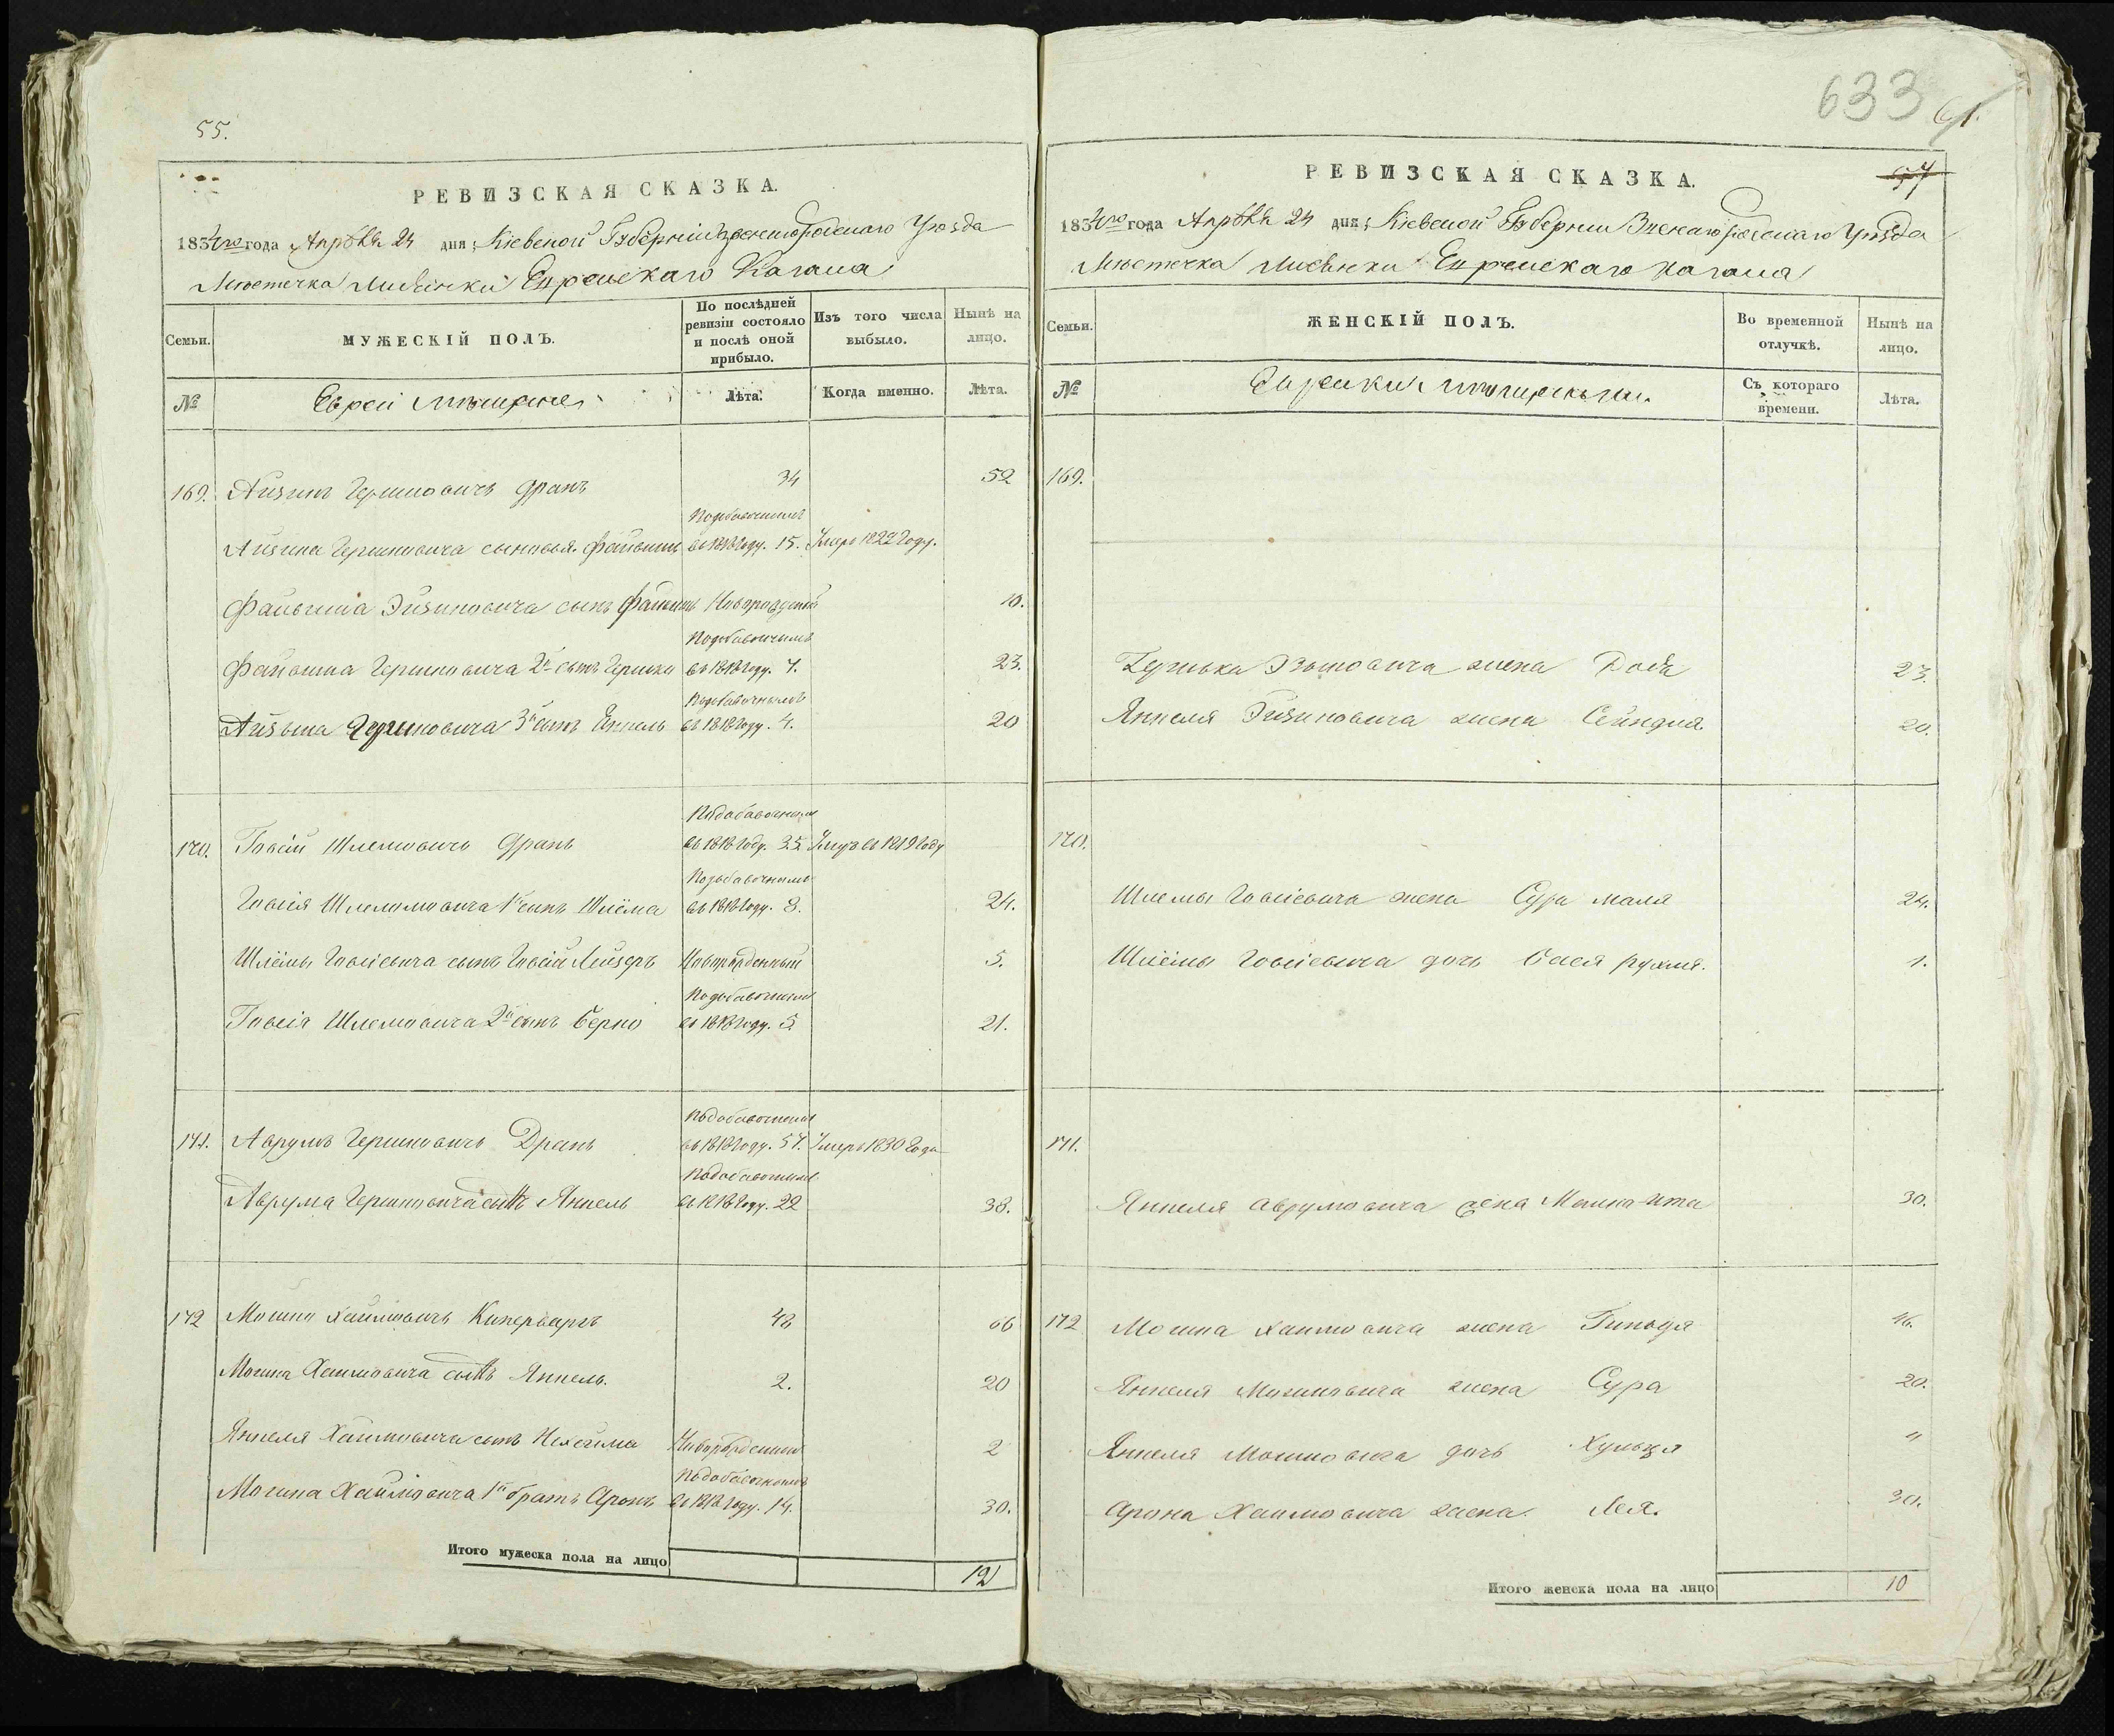 55.
РЕВИЗСКАЯ СКАЗКА.
1834го года Апрѣля 24 дня; Кіевской Губерніи Звенигородскаго Уѣзда
Мѣстечка Лисянки Еврейскаго Кагала
Семьи.
МУЖЕСКІЙ ПОЛЪ.
По послѣдней ревизіи состояло и послѣ оной прибыло.
Изъ того числа выбыло.
Нынѣ на лицо.
№
Евреи мѣщане
Лѣта.
Когда именно.
Лѣта.
169. Айзикъ Гершковичъ Дранъ 34 52
Айзика Гершковича сыновья. Файвишъ Подобавочнымъ въ 1818 году. 15. Умеръ 1822 году.
Файвиша Эйзиковича сынъ Новорожденный 10.
Гершковича 2й сынъ Гершко Подобавочнымъ въ 1818 году. 7. 23.
Айзыка Гершковича 3й сынъ Янкель Подобавочнымъ въ 1818 году. 4. 20
170. Говсій Шлемовичъ Дранъ Подобавочнымъ въ 1818 году. 35. Умеръ въ 1819 году
Говсія Шлемовича 1й сынъ Шлёма Подобавочнымъ въ 1818 году. 8. 24.
Шлёмы Говсіевича сынъ Говсій Лейзеръ Новорожденный 5.
Говсія Шлемовича 2й сынъ Берко Подобавочнымъ въ 1818 году. 5. 21.
171. Аврумъ Гершковичъ Дранъ Подобавочнымъ въ 1818 году. 57. Умеръ 1830 года
Аврума Гершковича сынъ Янкель Подобавочнымъ въ 1818 году. 22 38.
172 Мошко Хаймовичъ 48 66
Мошка Хаимовича сынъ Янкель. 2. 20
Янкеля Хаимовича сынъ Новорожденный 2
Мошка Хаимовича 1й братъ Аронъ Подобавочнымъ въ 1818 году. 14. 30.
Итого мужеска пола на лицо 12
633
61.
57
РЕВИЗСКАЯ СКАЗКА.
1834го года Апрѣля 24 дня; Кіевской Губерніи Звенигородскаго Уѣзда
Мѣстечка Лисянки Еврейскаго кагала
Семьи.
ЖЕНСКІЙ ПОЛЪ.
Во временной отлучкѣ.
Нынѣ на лицо.
№
Еврейки мѣщанки.
Съ котораго времени.
Лѣта.
169.
Гершка Эзыковича жена 23.
Янкеля Эйзиковича жена Сейндля. 20.
170.
Шлемы Говсіевича жена Сура Маля 24.
Шлёмы Говсіевича дочь Бася рухля. 1.
171.
Янкеля Аврумовича жена 30.
172 Мошка Хаимовича жена Гинъдя 46.
Янкеля Мошковича жена Сура 20.
Янкеля Мошковича дочь "
Арона Хаимовича жена. Лея. 30.
Итого женска пола на лицо 10